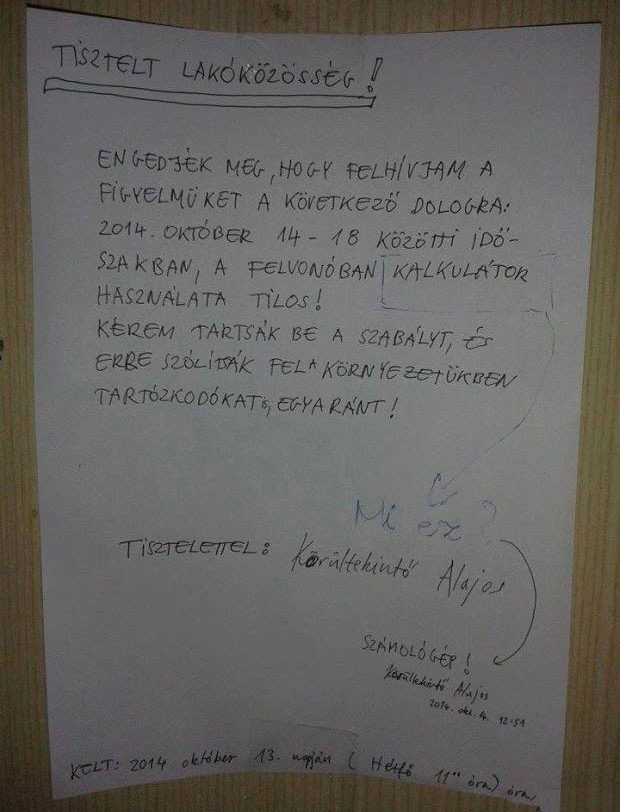 TISZTELT LAKÓKÖZÖSSÉG!
ENGEDJÉK MEG, HOGY FELHÍVJAM A
FIGYELMÜKET A KÖVETKEZŐ DOLOGRA:
2014. OKTÓBER 14-18 KÖZÖTTI IDŐ-
SZAKBAN, A FELVONÓBAN KALKULÁTOR
HASZNÁLATA TILOS!
KÉREM TARTSÁK BE A SZABÁLYT, ÉS
ERRE SZÓLÍTSÁK FEL A KÖRNYEZETÜKBEN
TARTÓZKODÓKAT IS, EGYARÁNT!
Mi ez?
TISZTELETTEL: Körültekintő Alajos
SZÁMOLÓGÉP!
Körültekintő Alajos
2014. okt. 12:51
KELT: 2014 október 13. napján (Hétfő 11 óra) óra,